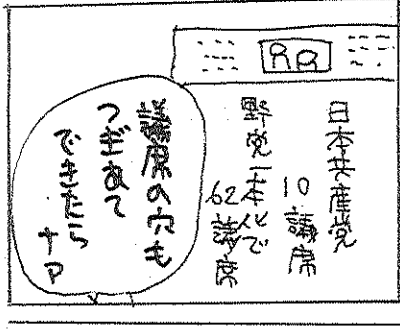 日本共産党
10議席
野党一本化で
62議席
議席の穴も
つぎあて
できたら
ナア